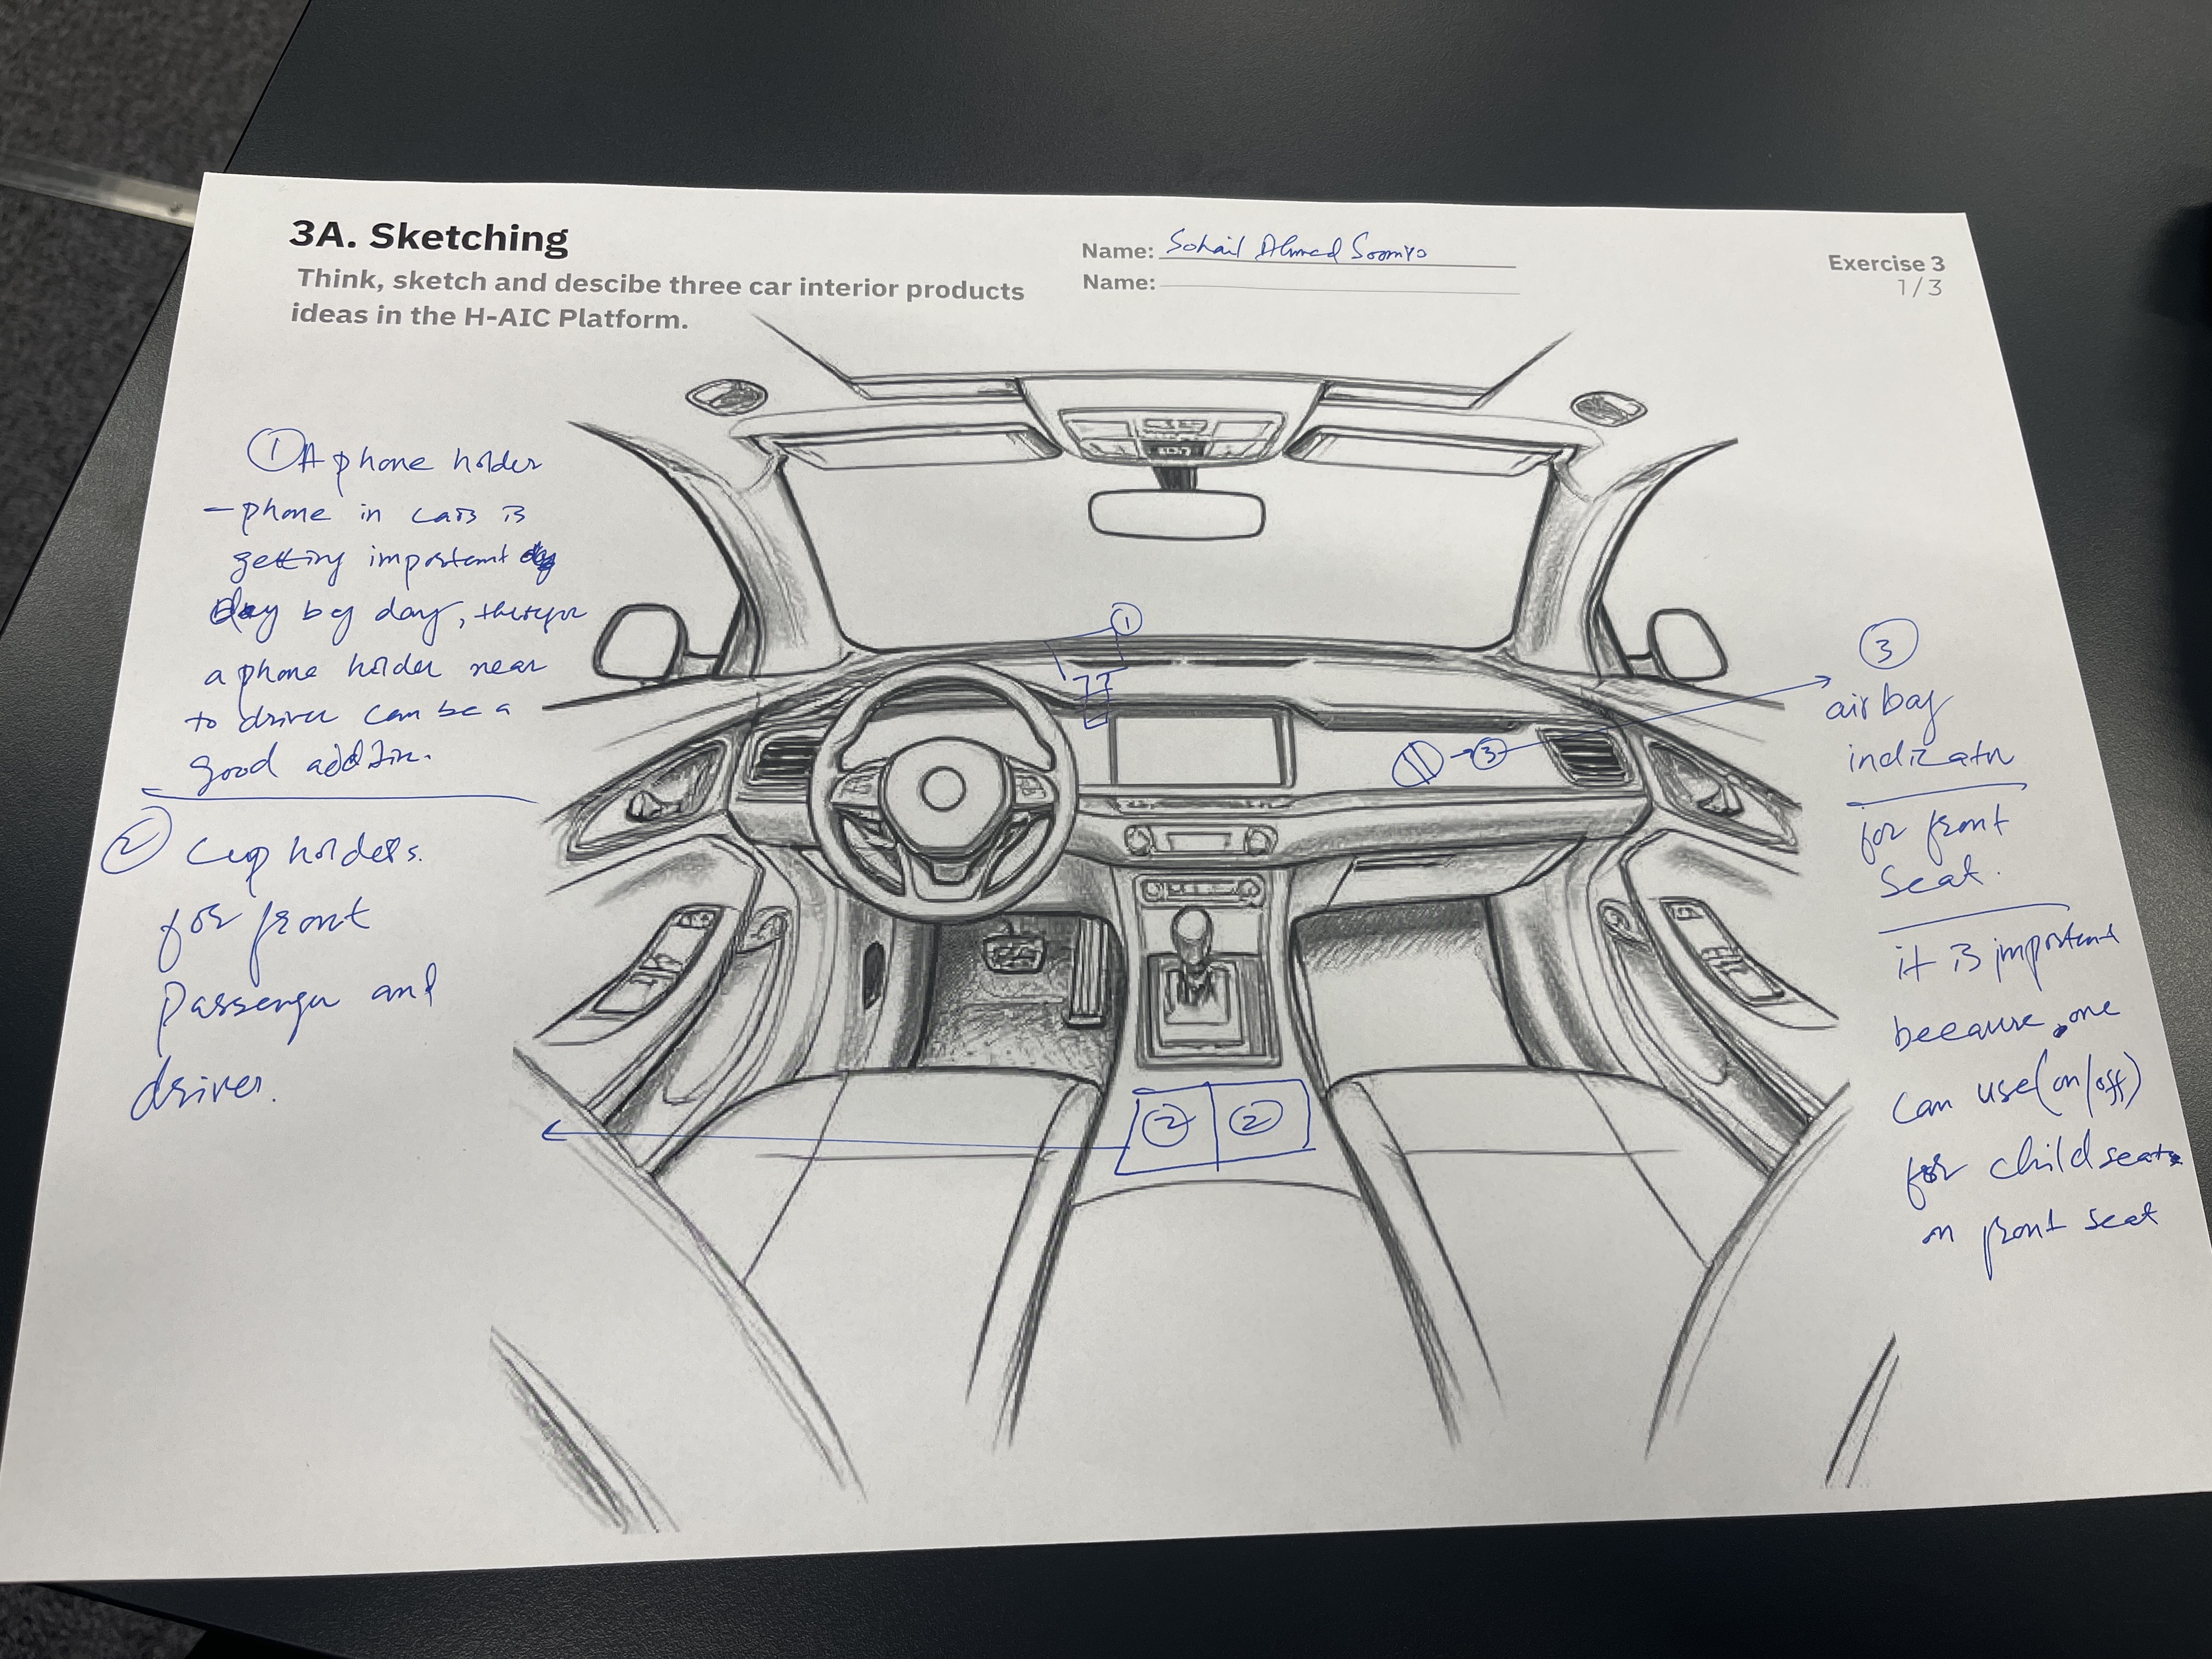 3A. Sketching
Think, sketch and descibe three car interior products
ideas in the H-AIC Platform.
Name: Sohail Ahmed Soomro
Name:
Exercise 3
1/3
① A phone holder
- phone in cars is
getting important
day by day,
a phone holder near
to driver can be a
good addition.
② Cup holders.
for front
Passenger and
driver.
1
2
2
3
③
airbag
indicator
for front
seat.
it is important
because, one
can use (on/off)
for child seats
on front seat